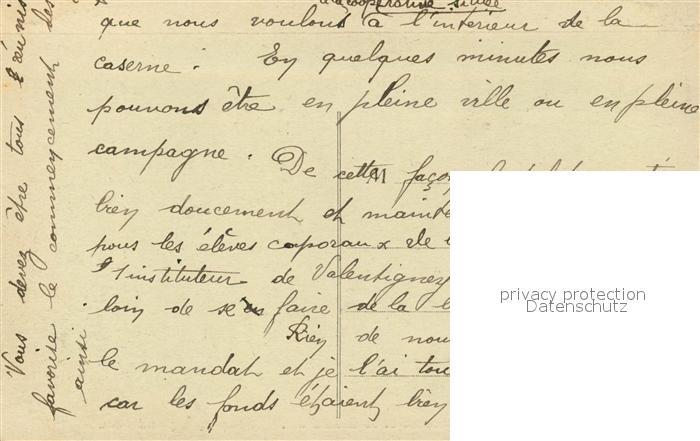 la coopérative située
que nous voulons à l'intérieur de la
caserne. En quelques minutes nous
pouvons être en pleine ville ou en pleine
campagne. De cette façon
bien doucement et mainte
pous les élèves caporaux de
l'instituteur de Valentigney
loin de se faire de la
Rien de nou
le mandat et je l'ai tou
car les fonds étaient bien
Vous devez être tous réunis
favorise le commencement des
ainsi
privacy protection
Datenschutz